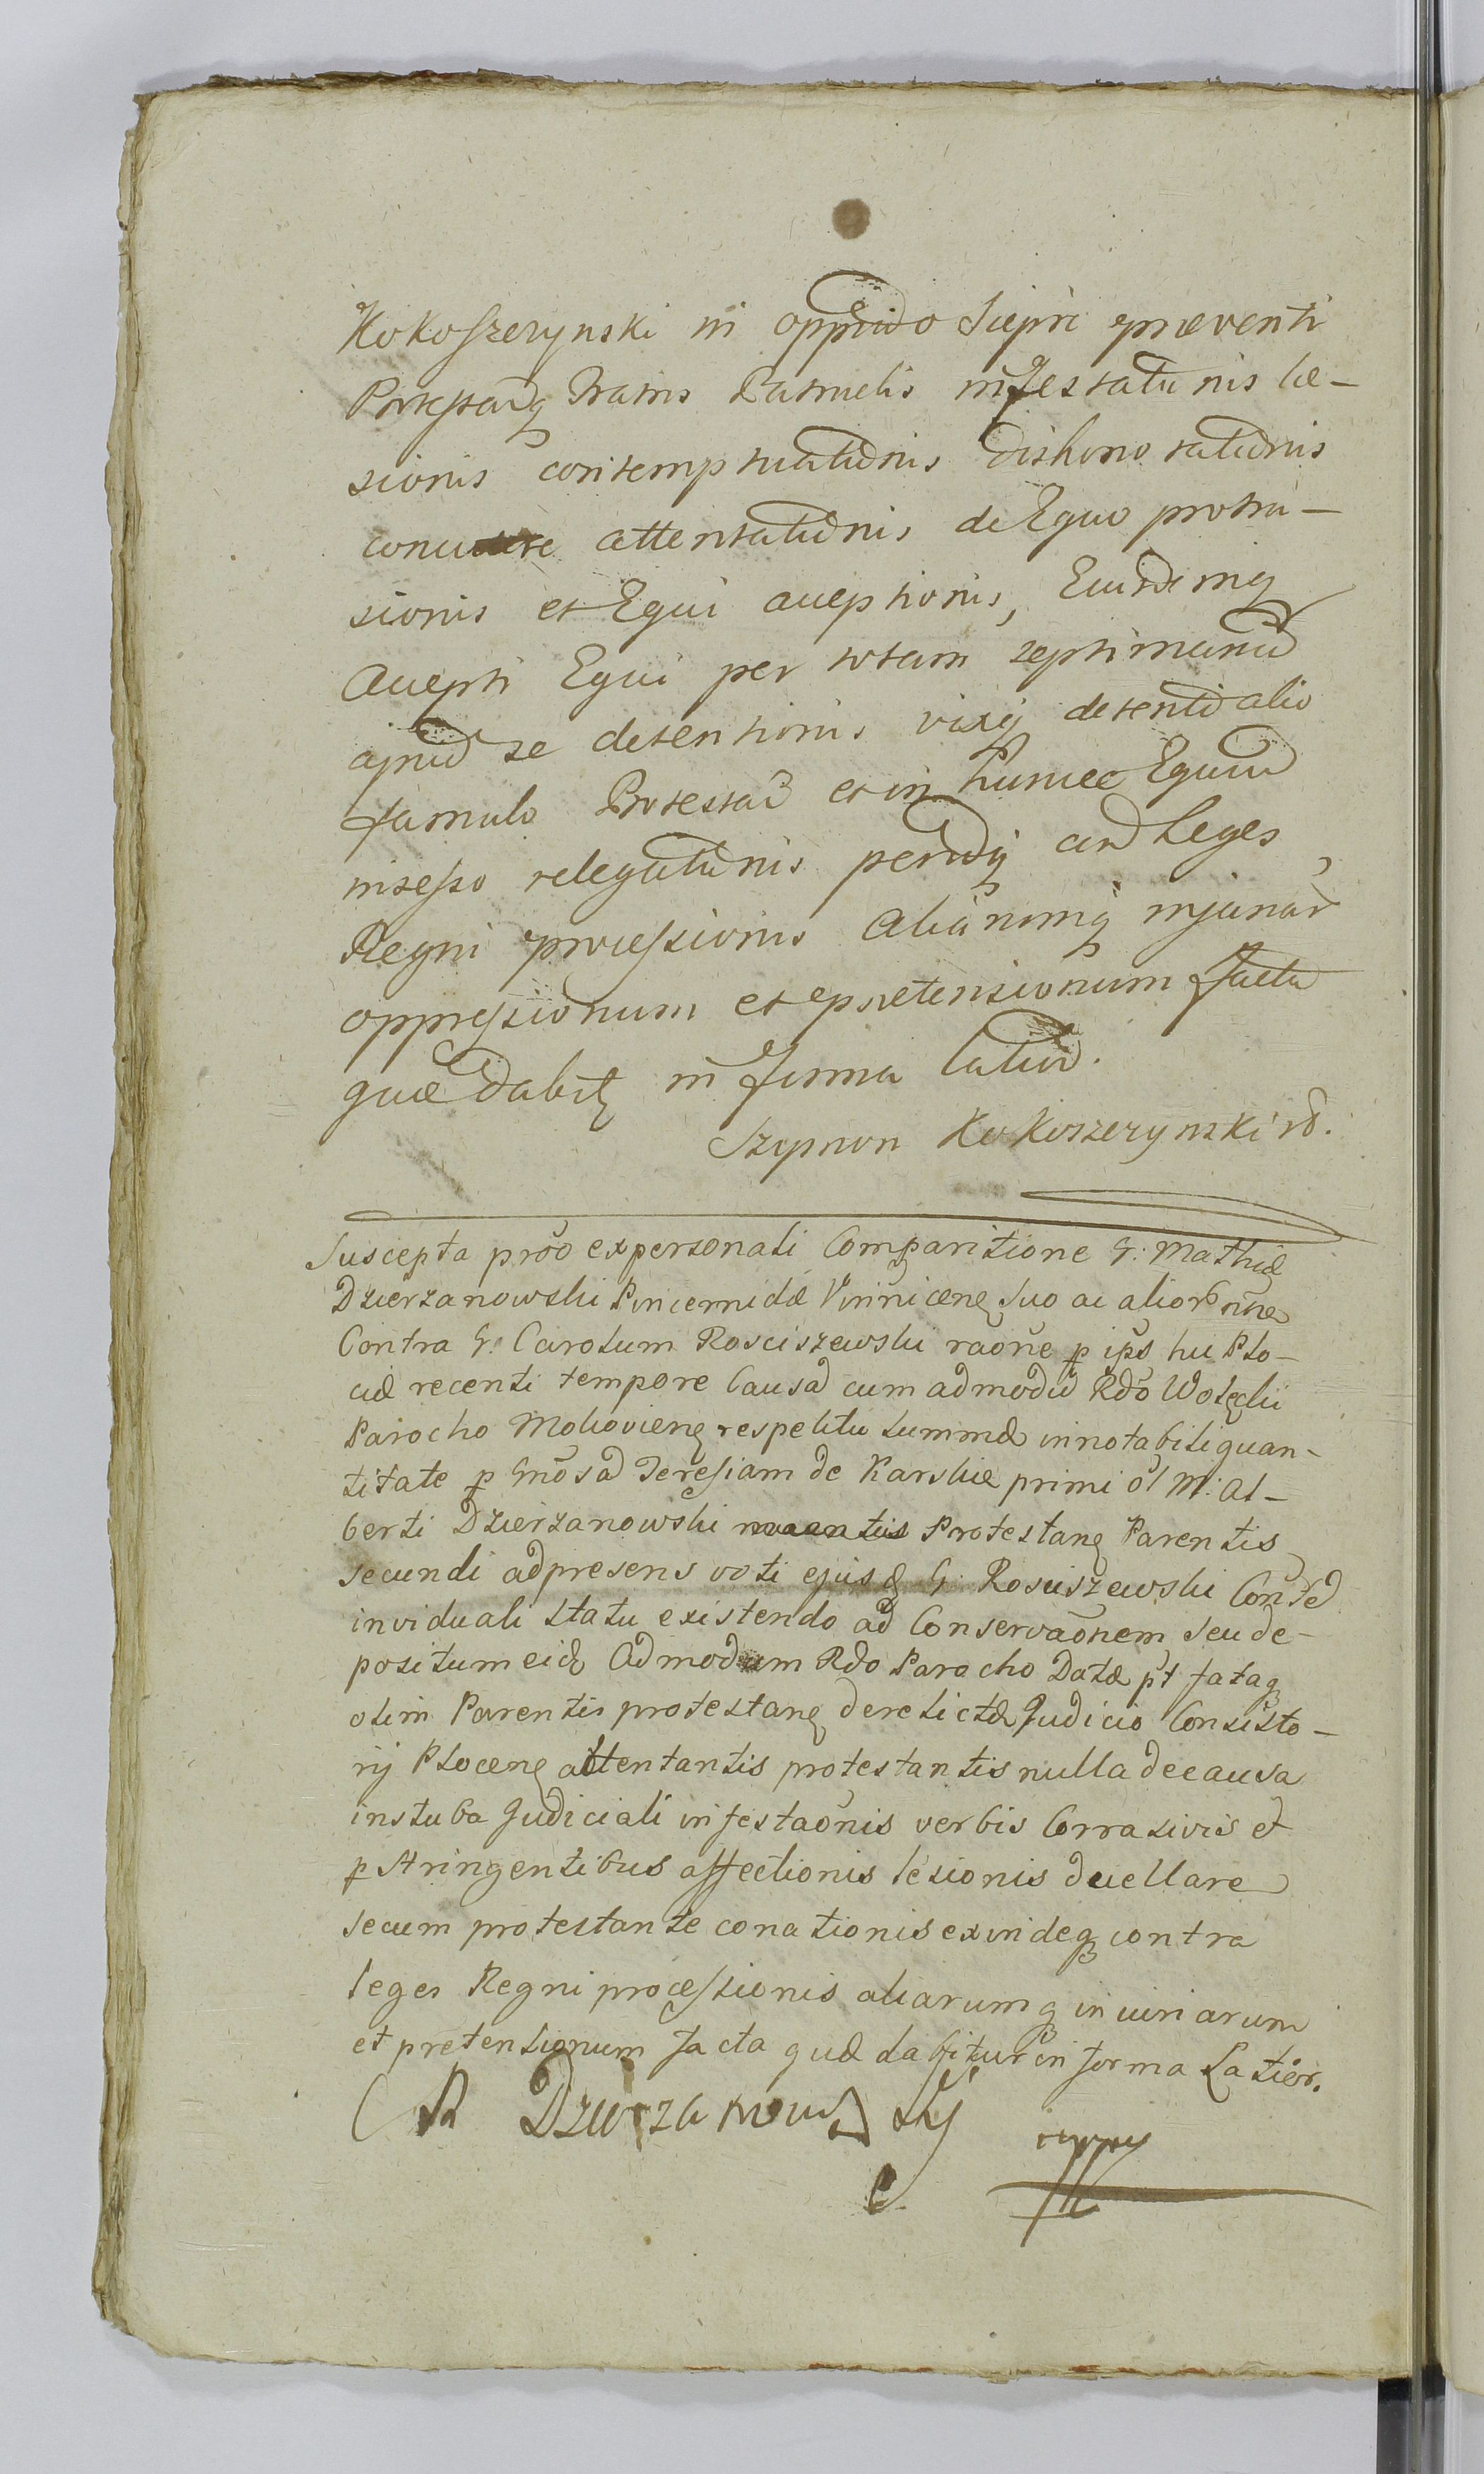 Kokoszczynski in oppido Siepri præventi
Protestanq Fratris Patruelis infestationis læ-
sionis contemptuationis dishonorationis
attentationis de Equo protru-
sionis et Equi acceptionis, Eiusdemq
accepti Equi per totam septimanam
apud se detentionis vixq detento alio
famulo Protestan et in hunce Equum
insesso relegationis perindeq contra Leges
Regni processionis Aliarumq injuriar
oppressionum et prætensionum facta
quæ dabitur in forma latiori.
Szymon Kokoszczynski
Suscepta prõo ex personali Comparitione G: Mathiæ
Dzierzanowski Pincernidæ Vinnicenę suo ac alior nõe
Contra G. Carolum Rosciszewski raõne p ips hic Plo-
ciæ recenti tempore Causa cum admodu Rdo Wolęcki
Parocho Mohovienę respectu summæ in notabili quan-
titate p Gnosa Teresiam de Karskie primi ol M: Al-
berti Dzierzanowski Protestanę Parentis
secundi ad presens voti ejusdę G. Rosciszewski Contεd
inviduali statu existendo ad Conservaõnem seu de-
positum eidę Admodum Rdo Parocho Datæ pt fataq
olim Parentis protestanę derelictæ Judicio Consisto-
rij Plocenę attentantis protestantis nulla de causa
in stuba Judiciali infestaõnis verbis Corrasivis et
pstringentibus affectionis lesionis duellare
secum protestante conationis exindeq contra
leges Regni processionis aliarumq iniuriarum
et pretensionum facta quæ dabitur in forma Latior.
M Dzierzanowsky